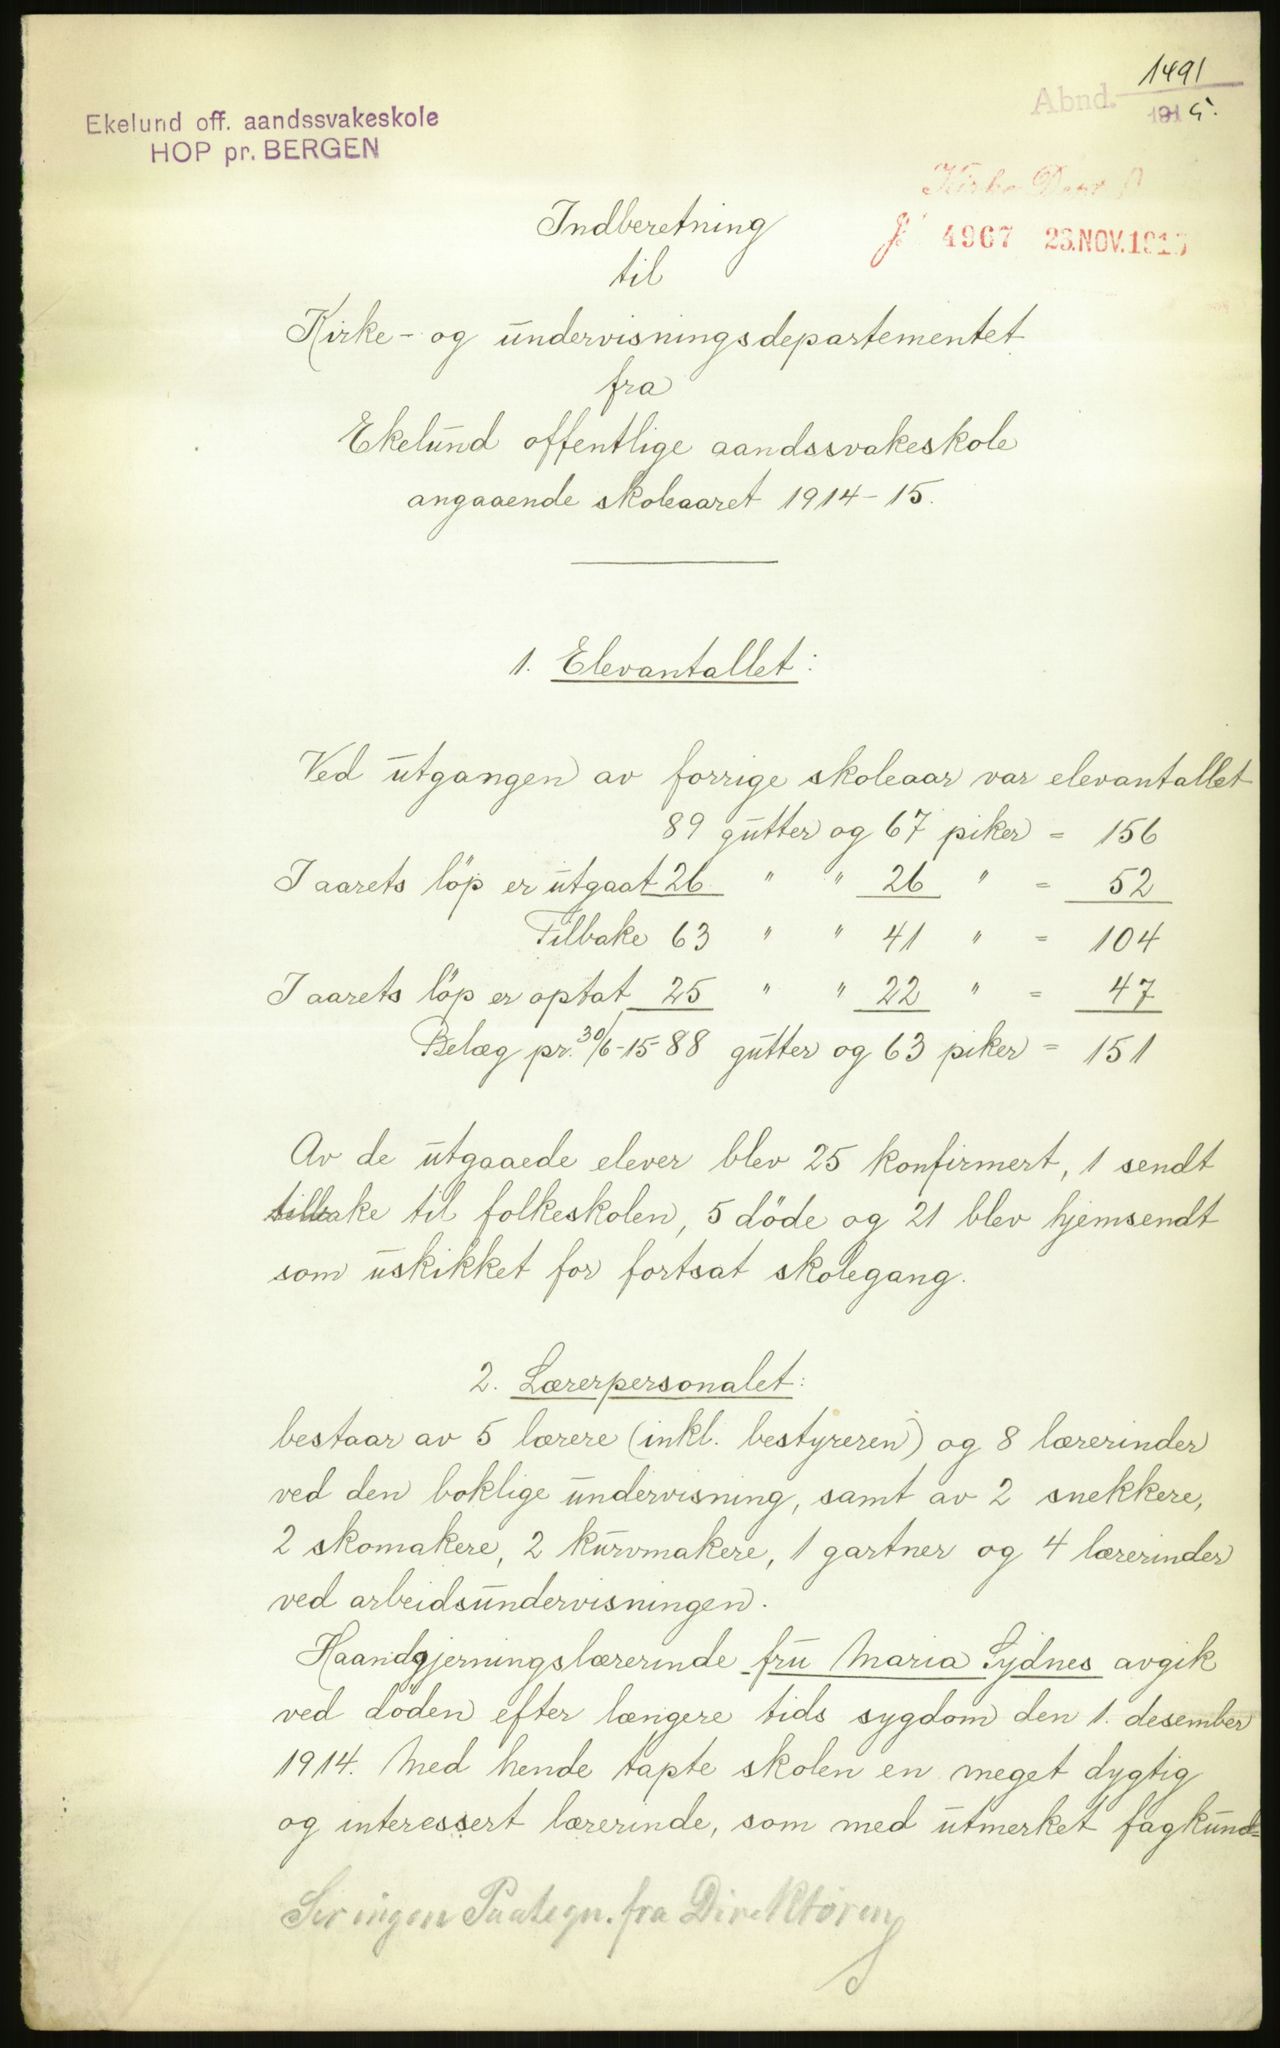 1491
Abnd. 1915.
Ekelund off. aandssvakeskole
HOP pr. BERGEN
J 4967 23.NOV.1915
Indberetning
til
Kirke- og undervisningsdepartementet
fra
Ekelund offentlige aandssvakeskole
angaaende skoleaaret 1914-15.
1. Elevantallet:
Ved utgangen av forrige skoleaar var elevantallet
89 gutter og 67 piker = 156
I aarets löp er utgaat 26 " " 26 " = 52
Tilbake 63 " " 41 " = 104
I aarets löp er optat 25 " " 22 " = 47
Belæg pr. 30/6-15 88 gutter og 63 piker = 151
Av de utgaaede elever blev 25 konfirmert, 1 sendt
tilbake til folkeskolen, 5 döde og 21 blev hjemsendt
som uskikket for fortsat skolegang.
2. Lærerpersonalet:
bestaar av 5 lærere (inkl. bestyreren) og 8 lærerinder
ved den boklige undervisning, samt av 2 snekkere,
2 skomakere, 2 kurvmakere, 1 gartner og 4 lærerinder
ved arbeidsundervisningen.
Haandgjerningslærerinde fru Maria Sydnes avgik
ved döden efter længere tids sygdom den 1. desember
1914. Med hende tapte skolen en meget dygtig
og interessert lærerinde, som med utmerket fagkund=
ingen Paategn. fra Direktøren